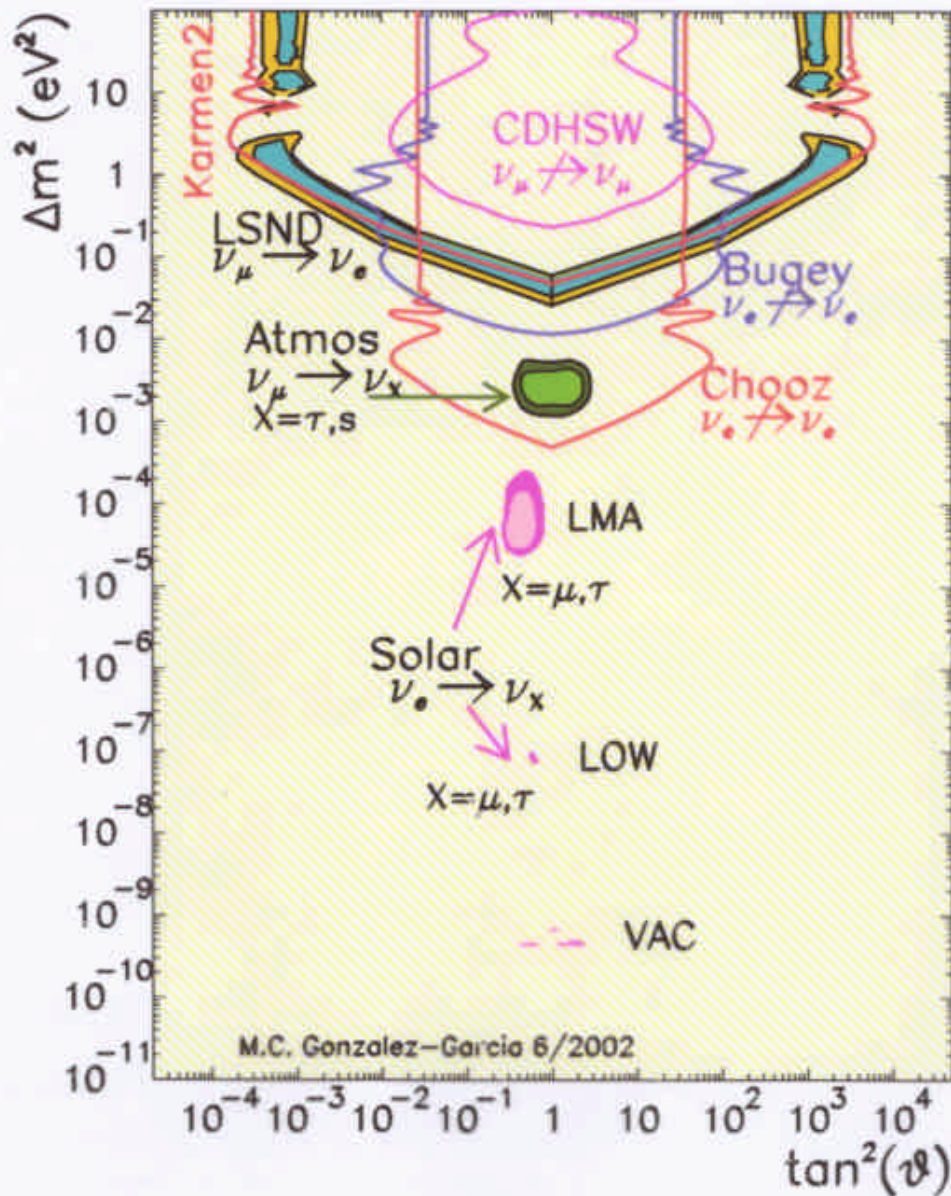 Δm² (eV²)
10
1
10⁻¹
10⁻²
10⁻³
10⁻⁴
10⁻⁵
10⁻⁶
10⁻⁷
10⁻⁸
10⁻⁹
10⁻¹⁰
10⁻¹¹
Karmen2
CDHSW
ν_μ ↛ ν_μ
LSND
ν_μ → ν_e
Bugey
ν_e ↛ ν_e
Atmos
ν_μ → ν_x
X=τ,s
Chooz
ν_e ↛ ν_e
LMA
X=μ,τ
Solar
ν_e → ν_x
LOW
X=μ,τ
VAC
M.C. Gonzalez-Garcia 6/2002
10⁻⁴ 10⁻³ 10⁻² 10⁻¹ 1 10 10² 10³ 10⁴
tan²(ϑ)